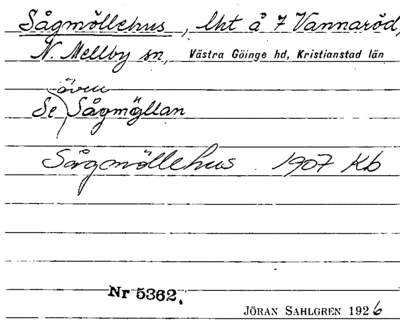 Sågmöllehus, lht å 7 Vannaröd,
N. Mellby sn, Västra Göinge hd, Kristianstad län
även
Se Sågmöllan
Sågmöllehus. 1907 Kb
Nr 5362.
JÖRAN SAHLGREN 1926